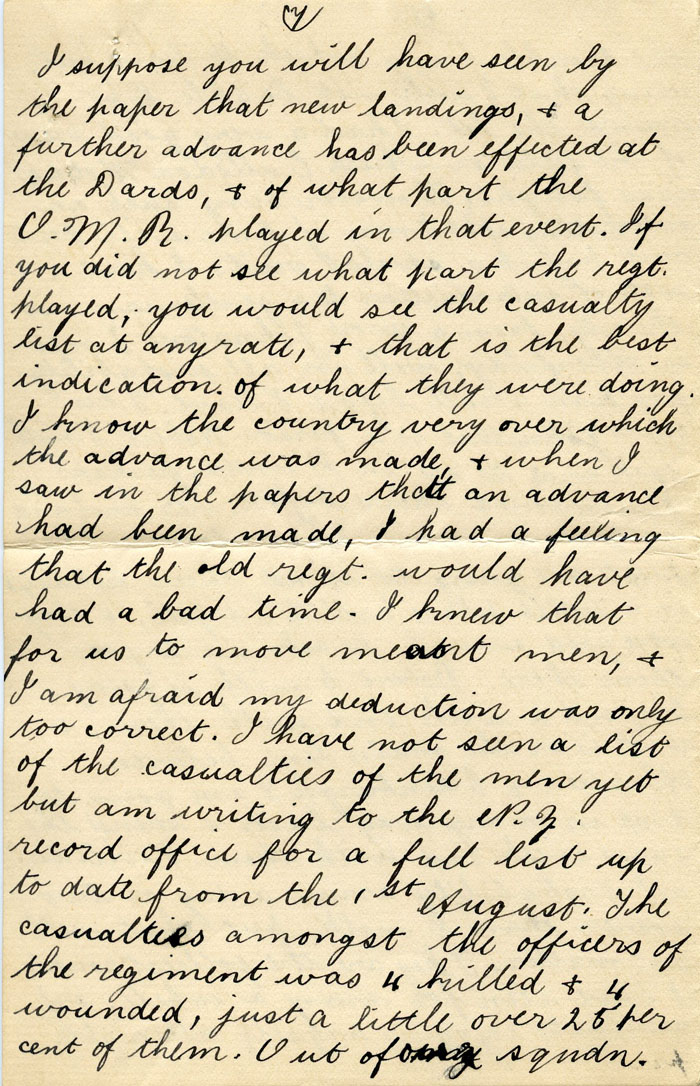 I suppose you will have seen by
the paper that new landings, & a
further advance has been effected at
the Dards, & of what part the
O. M. R. played in that event. If
you did not see what part the regt.
played, you would see the casualty
list at anyrate, & that is the best
indication. of what they were doing.
I know the country very over which
the advance was made, & when I
saw in the papers that an advance
had been made, I had a feeling
that the old regt. would have
had a bad time. I knew that
for us to move meant men, &
I am afraid my deduction was only
too correct. I have not seen a list
of the casualties of the men yet
but am writing to the N. Z.
record office for a full list up
to date from the 1st August. The
casualties amongst the officers of
the regiment was 4 killed & 4
wounded, just a little over 25 per
cent of them. Out of my squdn.